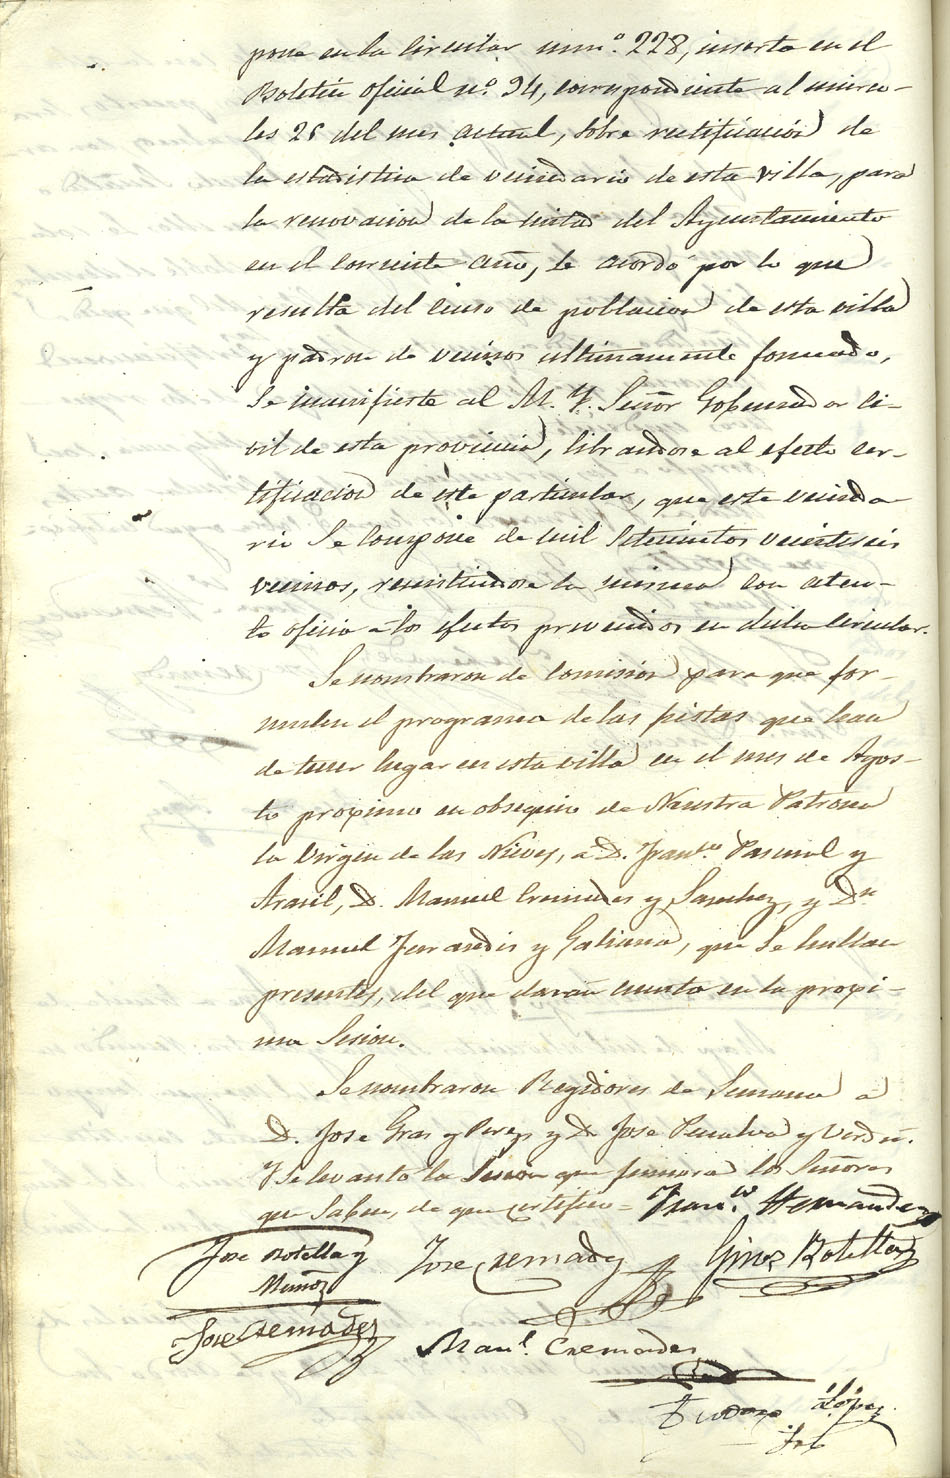 pone en la Circular num.º 228, inserta en el
Boletin oficial n.º 94, correspondiente al mierco-
les 26 del mes actual, sobre rectificación de
la estadistica de vecindario de esta villa, para
la renovacion de la mitad del Ayuntamiento
en el corriente año, se acordó por lo que
resulta del censo de poblacion de esta villa
y padron de vecinos ultimamente formado,
se manifieste al M. Y. Señor Gobernador Ci-
vil de esta provincia, librandose al efecto cer-
tificacion de este particular, que este vecinda-
rio se compone de mil setecientos veintiseis
vecinos, remitiendose la misma con aten-
to oficio a los efectos prevenidos en dicha circular.
Se nombraron de Comisión para que for-
mulen el programa de las fiestas que han
de tener lugar en esta villa en el mes de Agos-
to proximo en obsequio de Nuestra Patrona
la Virgen de las Nieves, a D. Fran.co Pascual y
Arasil, D. Manuel Cremades y Sanchez, y D.n
Manuel Ferrandis y Galiana, que se hallan
presentes, del que daran cuenta en la proxi-
ma Sesion.
Se nombraron Regidores de Semana a
D. Jose Gras y Perez y D. Jose Penalva y Verdú.
Y se levantó la Sesion que firmara los Señores
que saben, de que certifico = Fran.co Hernandez
Jose Botella y Jose Cremades Gines Botella
Muñoz
Jose Cremades
Man.l Cremades
Teodoro López